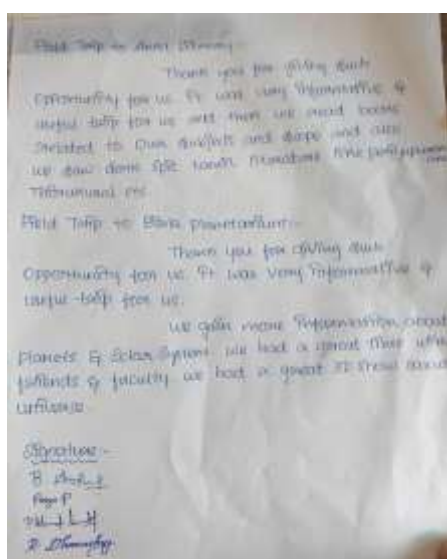 Field Trip to Anna library:-
Thank you for giving such
opportunity for us. It was very informative &
useful trip for us and then we read books
related to our subjects and dope and also
we saw some
etc
Field Trip to Birla planetarium:-
Thank you for giving such
opportunity for us. It was very informative &
useful trip for us.
we gain more information about
planets & Solar System. we had a great time with
friends & faculty we had a great 3D show about
universe.
Signature:-
B.
Priya P